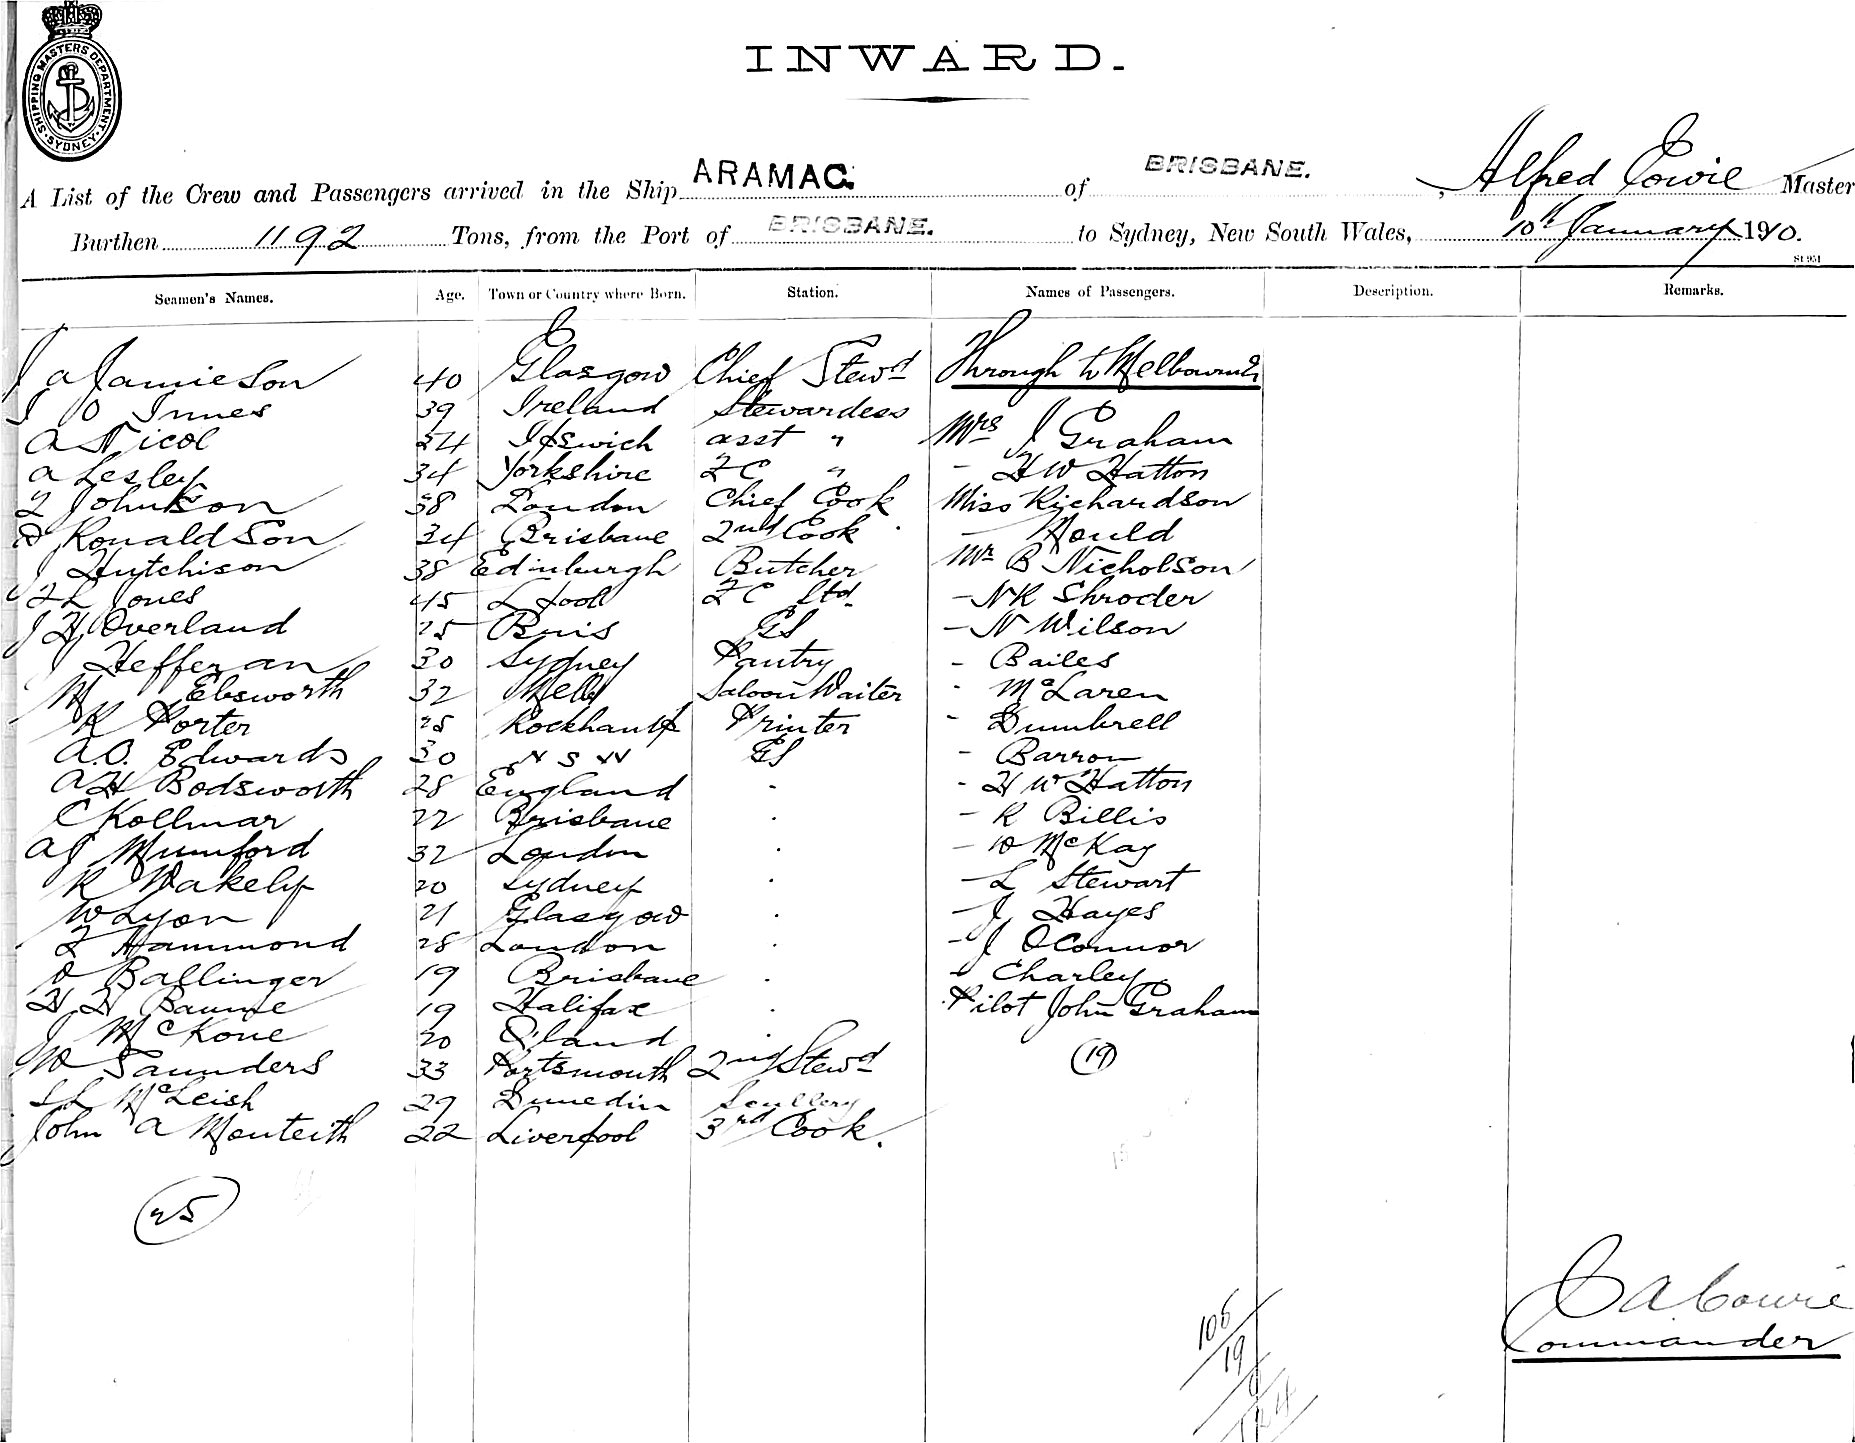 SHIPPING MASTERS DEPARTMENT. SYDNEY
INWARD.
A List of the Crew and Passengers arrived in the Ship ARAMAC. of BRISBANE. , Alfred Cowie Master
Burthen 1192 Tons, from the Port of BRISBANE. to Sydney, New South Wales, 10th January 1910.
St 951
Seamen's Names. Age. Town or Country where Born. Station. Names of Passengers. Description. Remarks.
J a Jamieson 40 Glasgow Chief Stewd Through to Melbourne
J O Innes 39 Ireland Stewardess
a Nicol 24 Ipswich asst " Mrs J Graham
a Lesley 34 Yorkshire FC " - H W Hatton
Johnson 38 London Chief Cook Miss Richardson
Ronaldson 34 Brisbane 2nd Cook - Hould
J Hutchison 38 Edinburgh Butcher Mr B Nicholson
Jones 45 L'pool FC - N R Shroder
J H Overland 25 Bris GS - N Wilson
J Hefferan 30 Sydney Pantry - Bailes
M Ebsworth 32 Melb Saloon Waiter - McLaren
R Porter 25 Rockhamp Printer - Dumbrell
A.O. Edwards 30 N S W GS - Barron
A H Bodsworth 28 England - H W Hatton
C Kollmar 22 Brisbane - R Billis
A J Mumford 32 London - D McKay
R Wakely 20 Sydney - L Stewart
W Lyon 21 Glasgow - J Hayes
F Hammond 28 London - J OConnor
D Ballinger 19 Brisbane - Charley
H H Baume 19 Halifax Pilot John Graham
J McKone 20 Q'land
W Saunders 33 Portsmouth 2nd Stewd (19)
S L McLeish 29 Dunedin Scullery
John A Monteith 22 Liverpool 3rd Cook.
(25)
106
19
C A Cowie
Commander